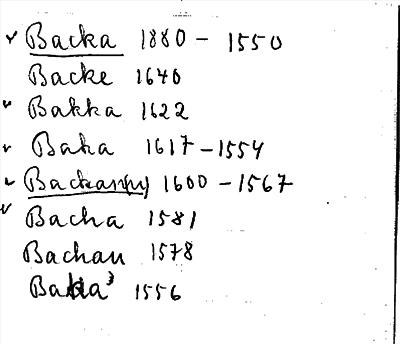 ✓ Backa 1880 - 1550
Backe 1640
✓ Bakka 1622
✓ Baka 1617-1554
✓ 1600-1567
✓ Bacha 1581
Bachau 1578
1556